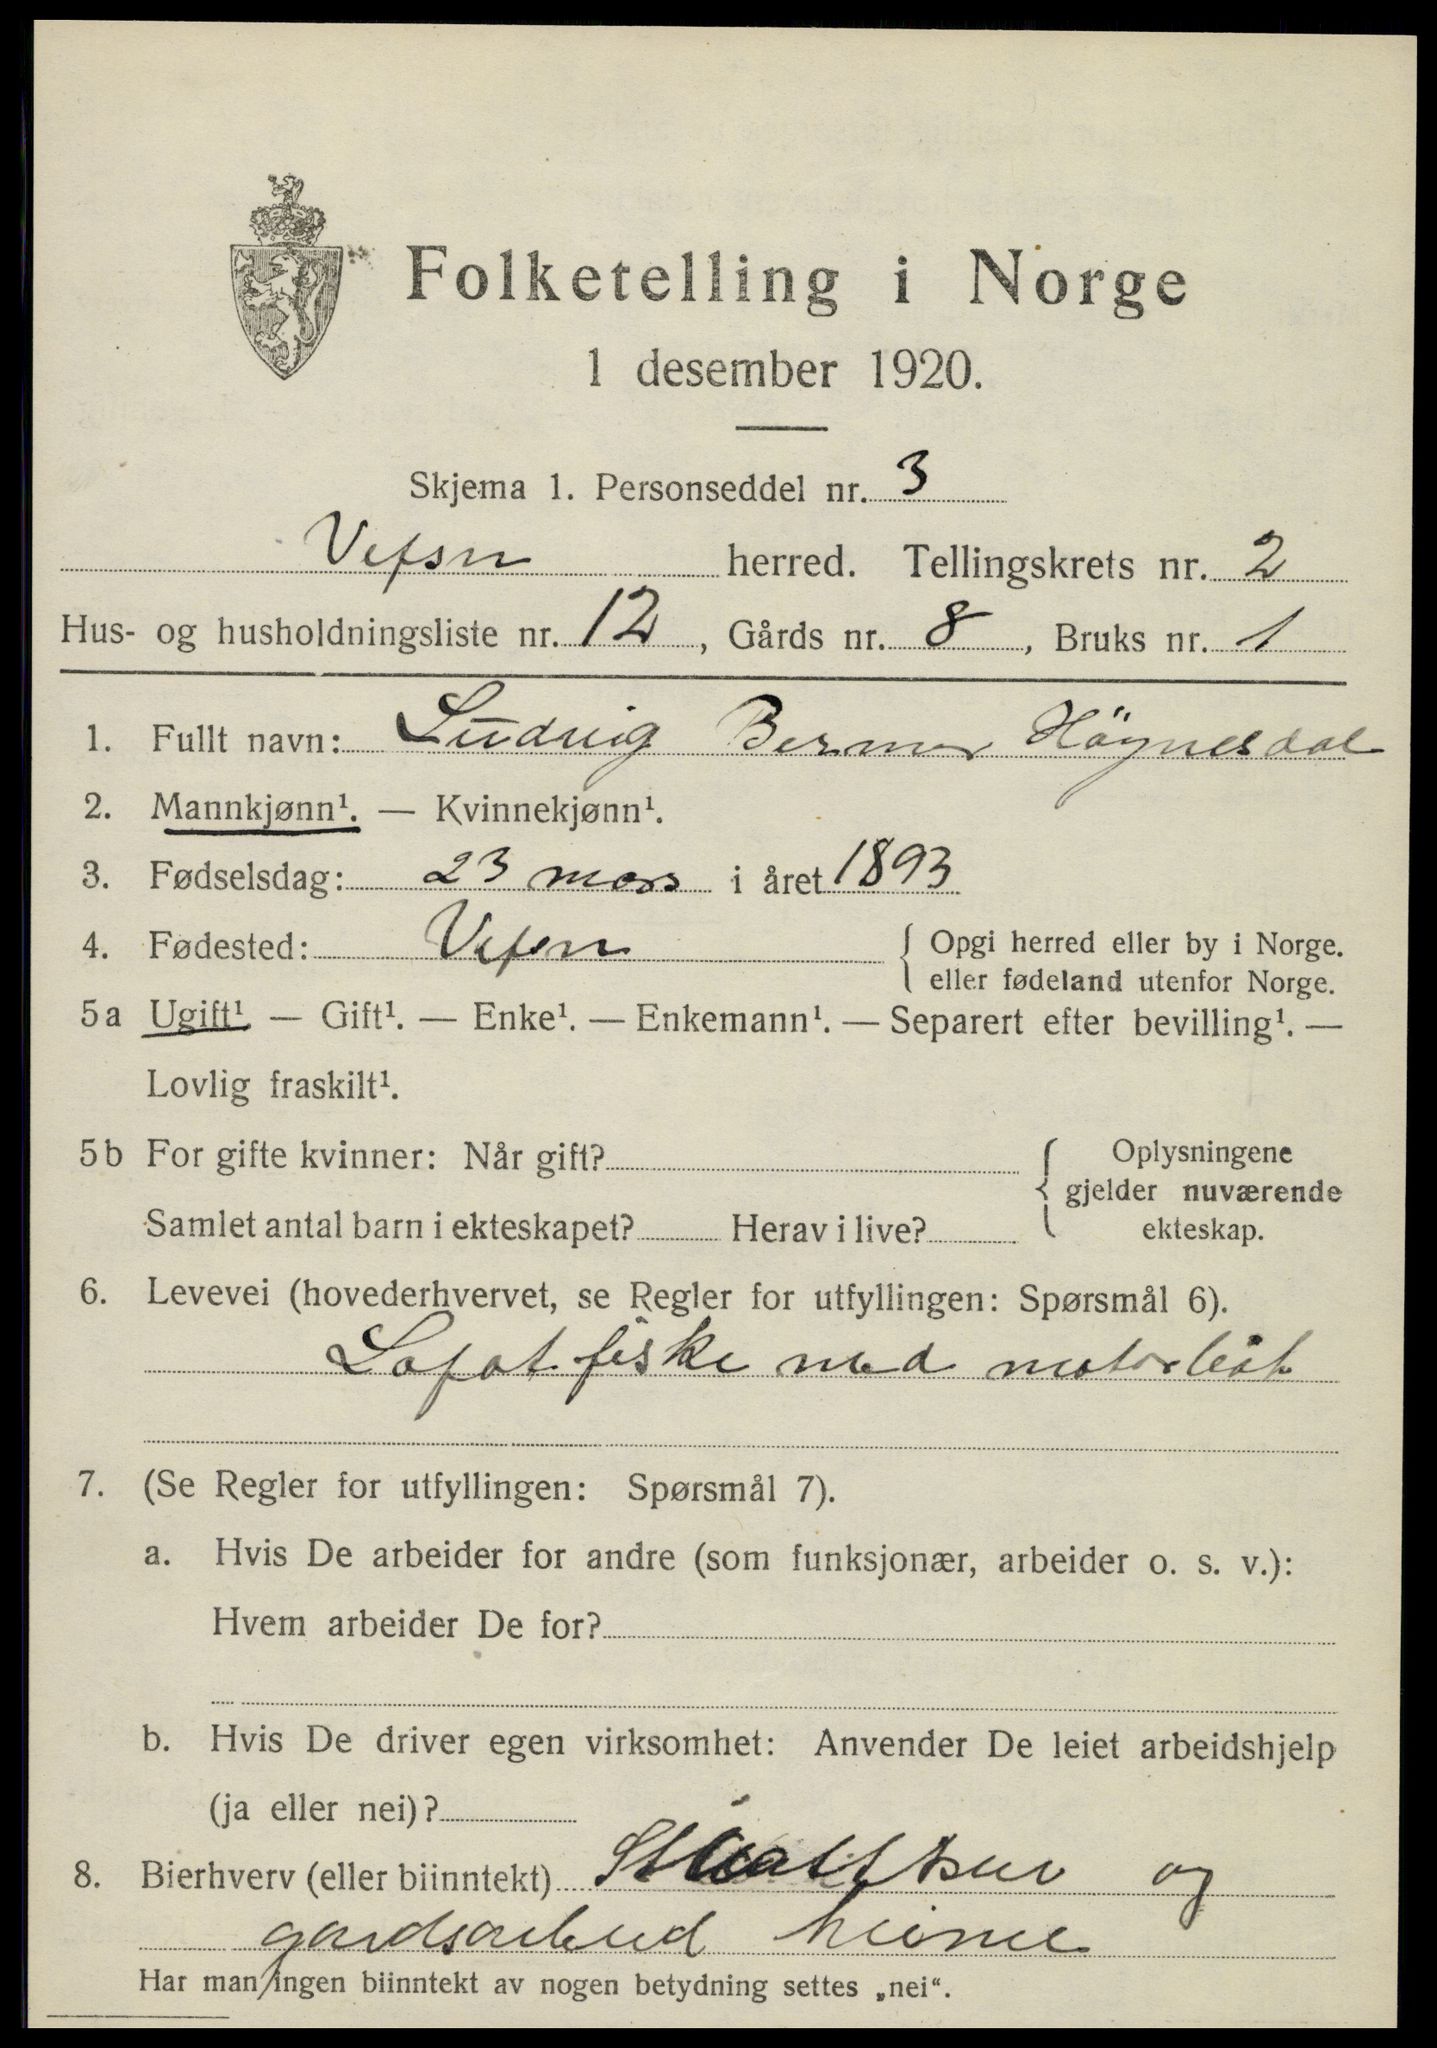 Folketelling i Norge
1 desember 1920.
Skjema 1. Personseddel nr. 3
Vefsn herred. Tellingskrets nr. 2
Hus- og husholdningsliste nr. 12, Gårds nr. 8, Bruks nr. 1
1. Fullt navn: Ludvig Høynesdal
2. Mannkjønn¹. — Kvinnekjønn¹.
3. Fødselsdag: 23 mars i året 1893
4. Fødested: Vefsn { Opgi herred eller by i Norge.
eller fødeland utenfor Norge.
5a Ugift¹ — Gift¹. — Enke¹. — Enkemann¹. — Separert efter bevilling¹. —
Lovlig fraskilt¹.
5b For gifte kvinner: Når gift? { Oplysningene
gjelder nuværende
Samlet antal barn i ekteskapet? Herav i live? ekteskap.
6. Levevei (hovederhvervet, se Regler for utfyllingen: Spørsmål 6).
Lofotfiske med motorbåt
7. (Se Regler for utfyllingen: Spørsmål 7).
a. Hvis De arbeider for andre (som funksjonær, arbeider o. s. v.):
Hvem arbeider De for?
b. Hvis De driver egen virksomhet: Anvender De leiet arbeidshjelp
(ja eller nei)?
8. Bierhverv (eller biinntekt) og
gardsarbeid heime
Har man ingen biinntekt av nogen betydning settes „nei“.